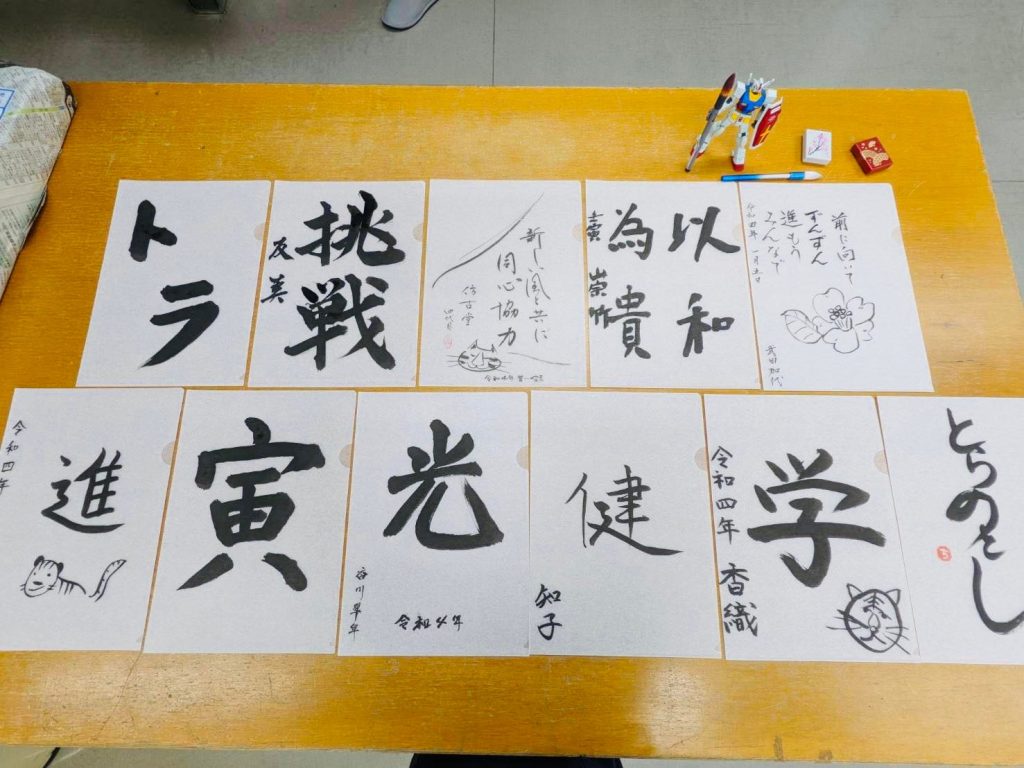 トラ
挑戦
友美
新しい風と共に
同心協力
仿古堂
四代目
以和
為貴
崇
前に向いて
ずんずん
進もう
みんなで
令和四年 一月五日
武田加代
令和四年
進
寅
光
谷川早年
令和4年
健
知子
令和四年
学
香織
とらのとし